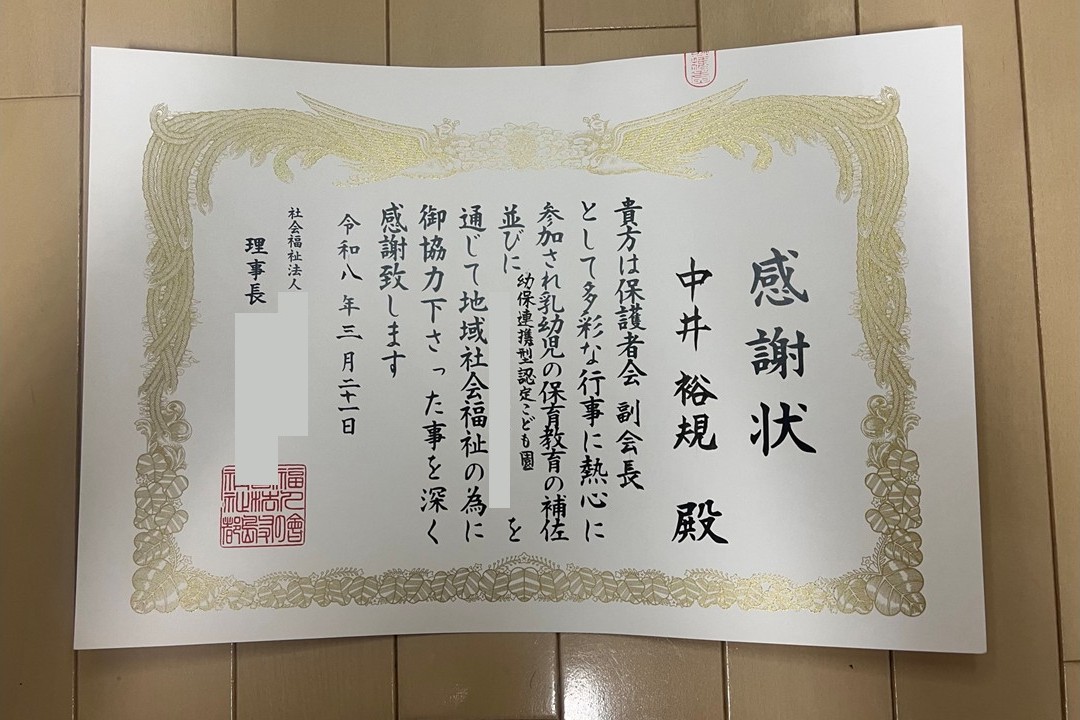 感謝状
中井 裕規 殿
貴方は保護者会 副会長
として多彩な行事に熱心に
参加され乳幼児の保育教育の補佐
並びに幼保連携型認定こども園
を
通じて地域社会福祉の為に
御協力下さった事を深く
感謝致します
令和八年三月二十一日
社会福祉法人
理事長